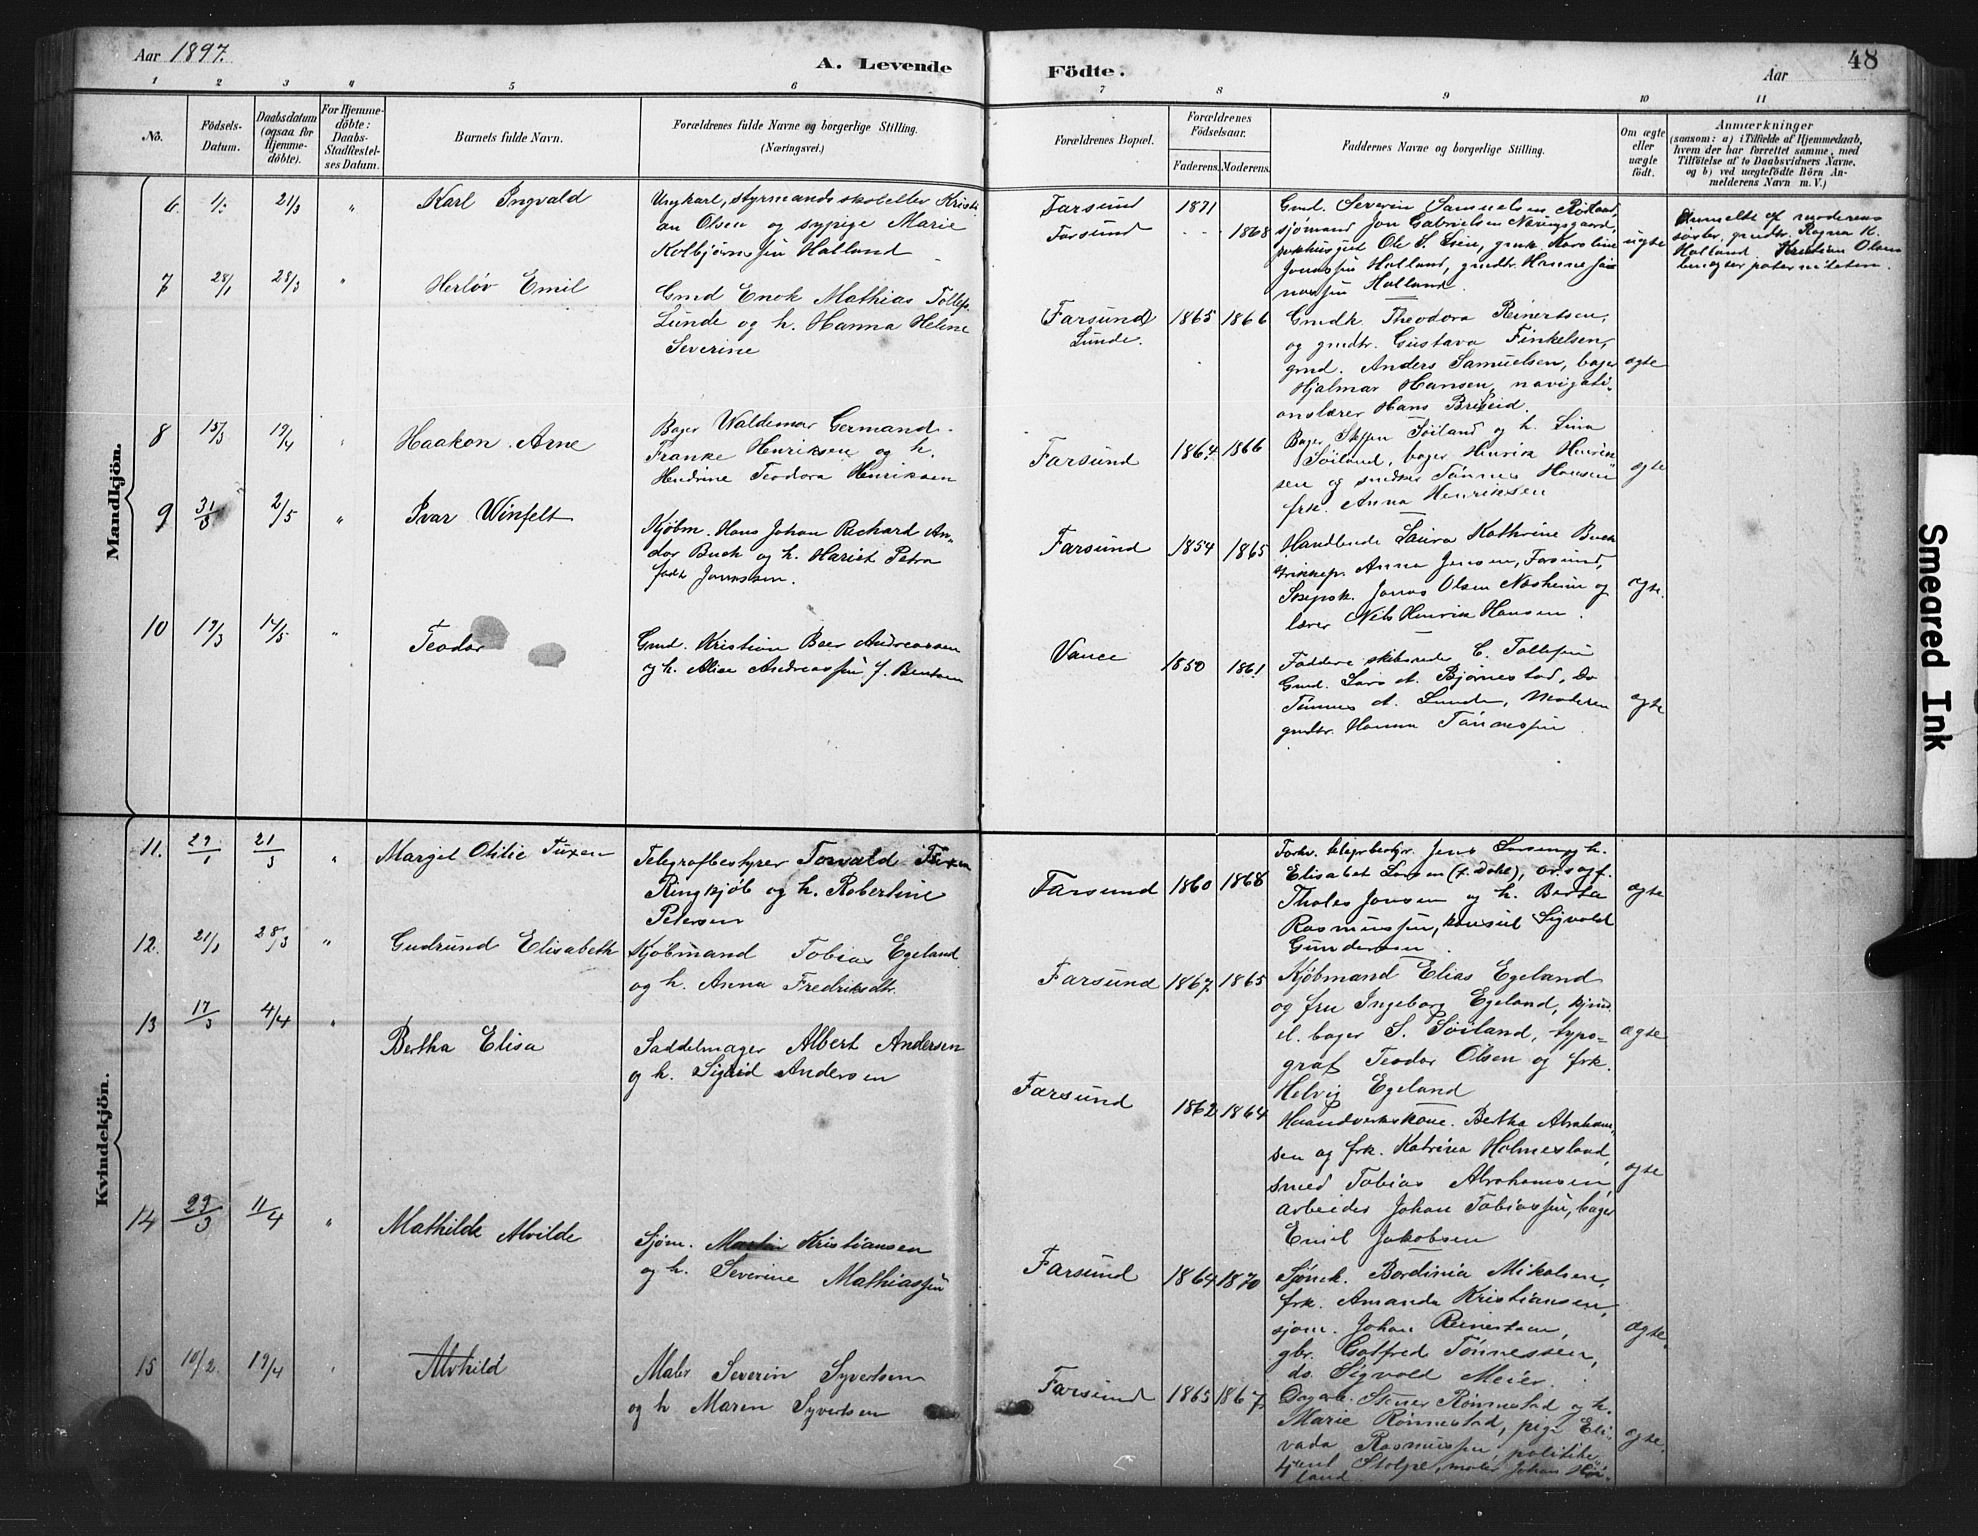 Aar 1897.
A. Levende Födte.
Aar
48
1 2 3 4 5 6 7 8 9 10 11
No.
Födsels-
Datum.
Daabsdatum
(ogsaa for
Hjemme-
döbte).
For Hjemme-
döbte:
Daabs-
Stadfæstel-
ses Datum.
Barnets fulde Navn.
Forældrenes fulde Navne og borgerlige Stilling.
(Næringsvei.)
Forældrenes Bopæl.
Forældrenes
Födselsaar.
Faderens. Moderens.
Faddernes Navne og borgerlige Stilling.
Om ægte
eller
uægte
födt.
Anmærkninger
(saasom: a) i Tilfælde af Hjemmedaab,
hvem der har forrettet samme, med
Tilföielse af to Daabsvidners Navne,
og b) ved uægtefödte Börn An-
melderens Navn m. V.)
Mandkjön.
6. 21/3 " Karl Ingvald
Ungkarl, styrmandsskoleelev Kristi
an Olsen og sypige Marie
Kolbjørnsen Halland
Farsund 1871
Farsund 1868
Gmd. Severin Samuelsen
sjømand Jon Gabrielsen
Ole S. Lien, gmk. Karoline
Halland, gmdtr. Hanne
Halland.
uægte
Anmeldt af moderens
søster, gmdtr. Ragna K.
Halland Kristian Olsen
benægter paterniteten.
7 28/1 28/3 " Herløv Emil
Gmd Enok Mathias Tollefs.
Lunde og h. Hanna Helene
Severine
Farsund
Lunde.
1865 1866
Gmdk. Theodora Reinertsen,
og gmdtr. Gustava Finkelsen,
gmd. Anders Samuelsen, bager
Hjalmar Hansen, navigati-
onslærer Hans Briseid.
ægte
8 15/3 19/4 " Haakon Arne
Bager Waldemar Germand
Franke Henriksen og h.
Hendrine Teodora Henriksen
Farsund 1864 1866
Bager Steffen Søiland og h. Lina
Søiland, bager Henrik Henrik
sen og snedker Tønnes Hansen
frk. Anna Henriksen
ægte
9 31/3 2/5 " Ivar Winfelt
Kjøbm. Hans Johan Rickard An-
dor Buch og h. Hariet Petra
født Jonassen.
Farsund 1854 1865
Handlende Laura Kathrine Buch
Anna Jensen, Farsund,
Jonas Olsen Næsheim og
lærer Nils Henrik Hansen.
ægte.
10 19/3 14/5 " Teodor
Gmd. Kristian Beer Andreassen
og h. Alise Andreassen f. Bentsen
Vance 1850 1861
Faddere skibsreder C. Tollefsen
Gmd. Lars A. Bjørnestad, Do
Tønnes A. Lunde, Moderen
gmdtr. Hanna Tønnessen
ægte
Kvindekjön.
11. 29/1 21/3 " Margit Otilie Tuxen
Telegrafbestyrer Torvald Tuxen
Ringkjøb og h. Robertine
Petersen
Farsund 1860 1868
Jens Larsen og h.
Elisabet Larsen (f. Dahl),
Tholes Jonsen og h. Berta
Rasmussen, konsul Sigvald
Gundersen
ægte
12. 21/1 28/3 " Gudrund Elisabeth
Kjøbmand Tobias Egeland
og h. Anna Fredriksdtr.
Farsund 1867 1865
Kjøbmand Elias Egeland
og fru Ingeborg Egeland,
bager S. Søiland, typo-
graf Teodor Olsen og frk.
Helvig Egeland
ægte
13 17/3 4/4 " Bertha Elisa
Saddelmager Albert Andersen
og h. Sigrid Andersen
Farsund 1862 1864
Haandverkskone Bertha Abraham-
sen og frk. Katrina Holmesland,
smed Tobias Abrahamsen,
arbeider Johan Tobiassen, bager
Emil Jakobsen
ægte
14 23/3 11/4 " Mathilde Alvilde
Sjøm. Martin Kristiansen
og h. Severine Mathiassen
Farsund 1864 1870
Sjømk. Bordinia Mikalsen,
frk. Amanda Kristiansen,
sjøm. Johan Reinertsen,
gbr. Gotfred Tønnessen,
do. Sigvald Meier.
ægte
15 10/2. 19/4 " Alvhild
Maler Severin Syvertsen
og h Maren Syvertsen
Farsund 1865 1867
Dagarb. Stener Rønnestad og h.
Marie Rønnestad, pige Eli-
vada Rasmussen, politibe-
tjent Stolpe, maler Johan
land
ægte.
Smeared Ink